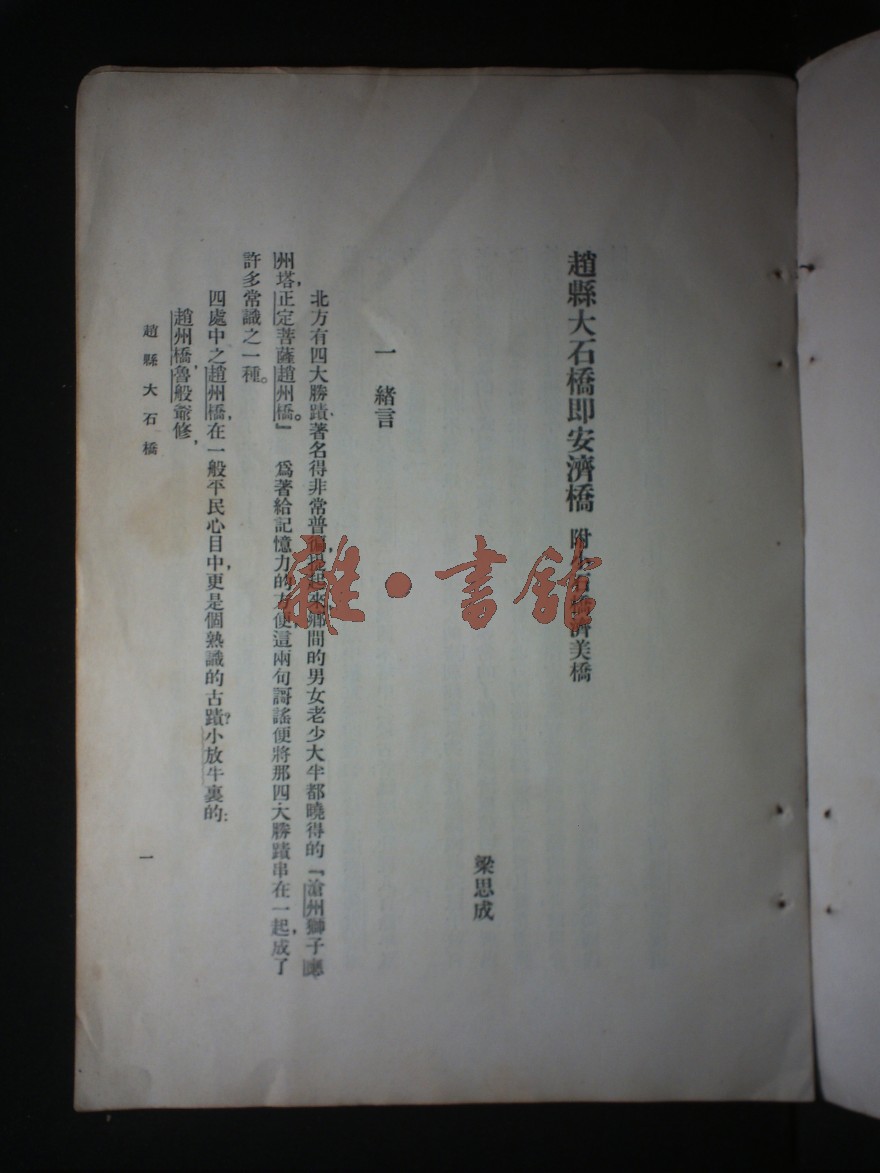 趙縣大石橋即安濟橋 附小石橋濟美橋
梁思成
一 緒言
北方有四大勝蹟，著名得非常普遍，提起來，鄉間的男女老少大半都曉得的『滄州獅子應
州塔，正定菩薩趙州橋。』 爲著給記憶力的方便，這兩句謌謠便將那四大勝蹟串在一起，成了
許多常識之一種。
四處中之趙州橋，在一般平民心目中，更是個熟識的古蹟？小放牛裏的：
趙州橋，魯般爺修，
趙縣大石橋
一
雜·書館